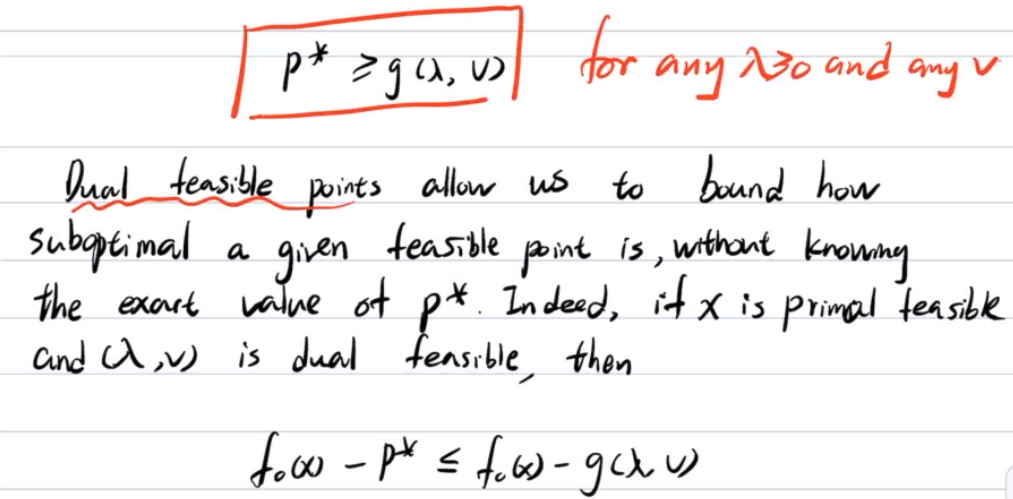 p* ≥ g(λ, ν) for any λ≥0 and any ν
Dual feasible points allow us to bound how
suboptimal a given feasible point is, without knowing
the exact value of p*. Indeed, if x is primal feasible
and (λ,ν) is dual feasible, then
f₀(x) - p* ≤ f₀(x) - g(λ, ν)